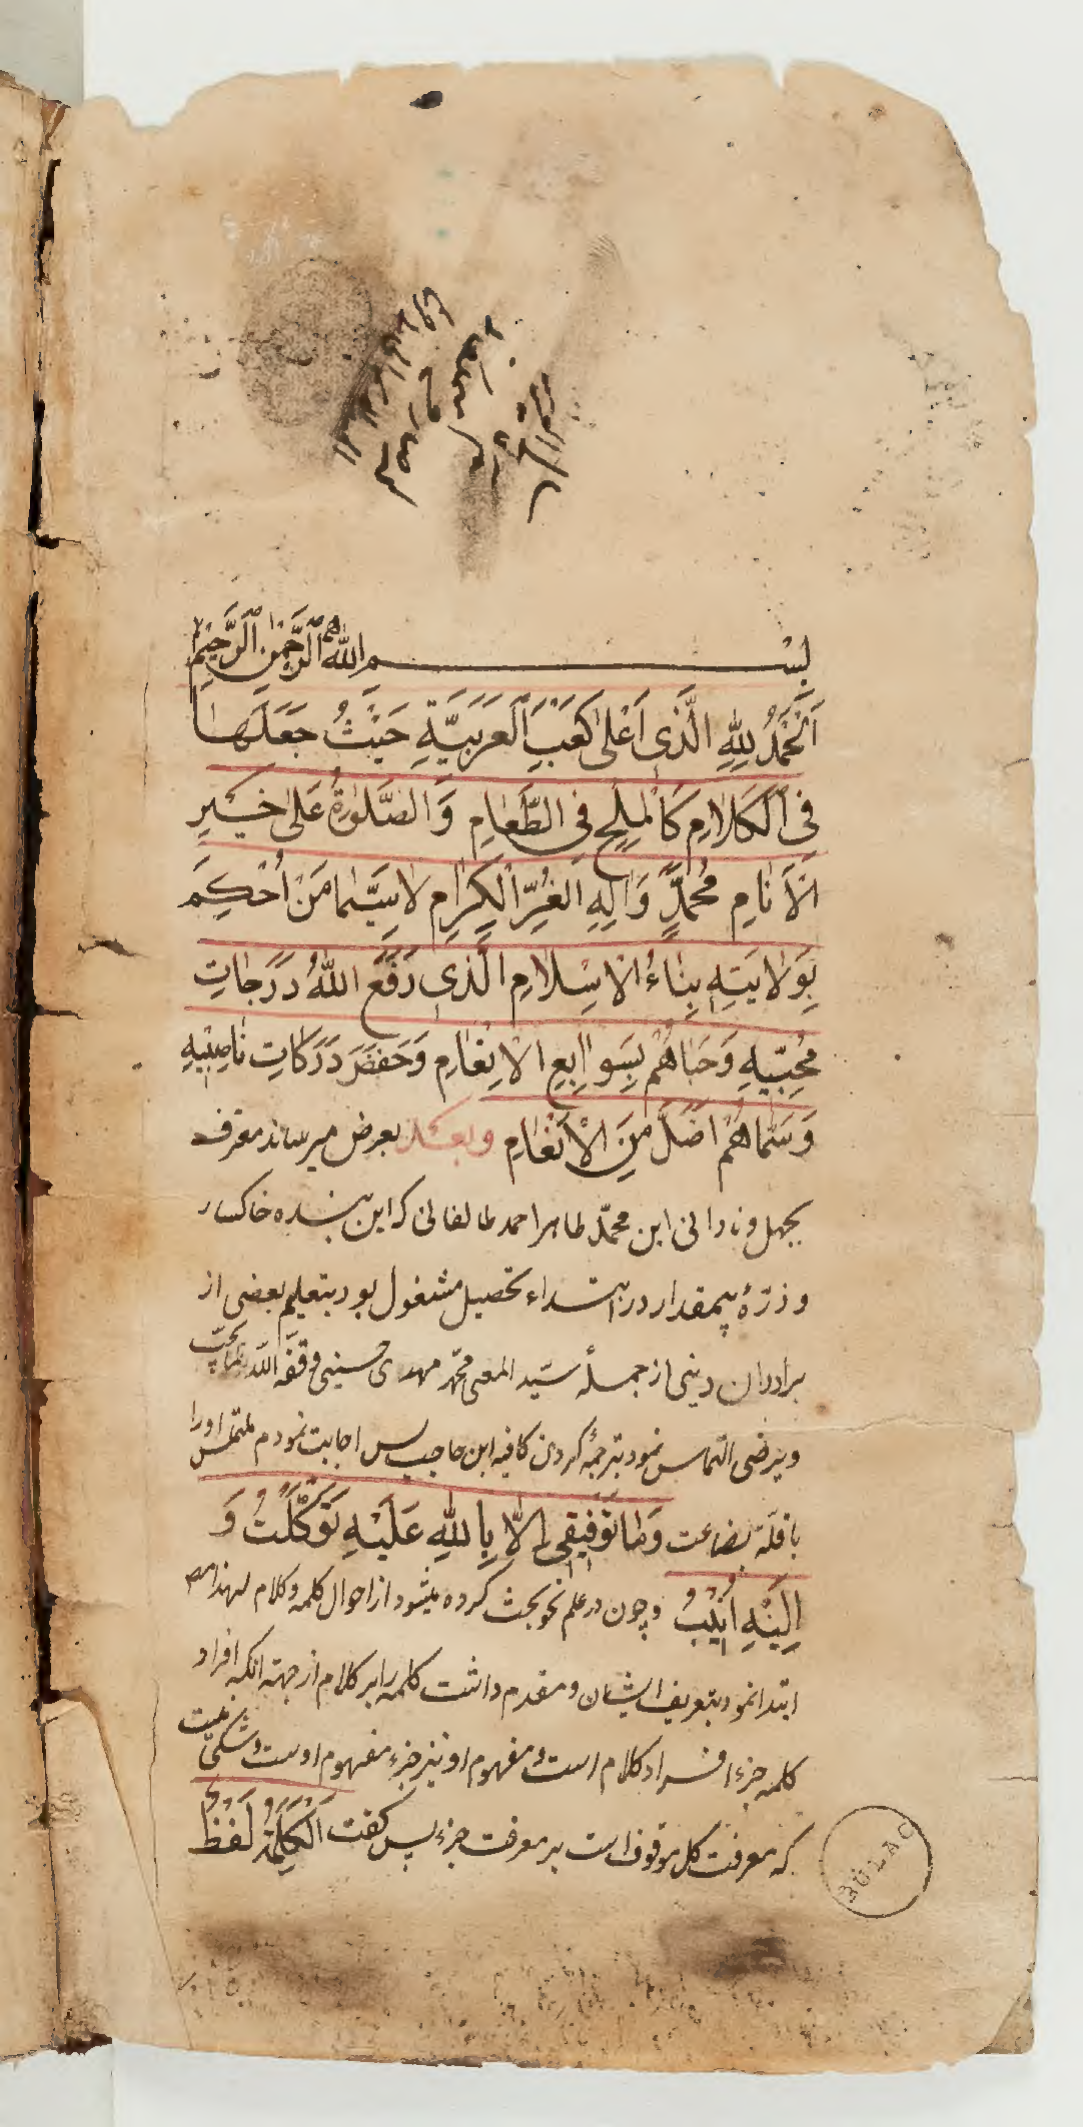 بِسْمِ اللهِ الرَّحْمٰنِ الرَّحِيْمِ
اَلْحَمْدُ لِلّٰهِ الَّذى اَعْلىٰ كَعْبَ الْعَرَبِيَّةِ حَيْثُ جَعَلَهٰا
فِى الْكَلٰامِ كَالْمِلْحِ فِى الطَّعٰامِ وَالصَّلوٰةُ عَلىٰ خَيْرِ
الْاَنٰامِ مُحَمَّدٍ وَاٰلِهِ الْغُرِّ الْكِرٰامِ لٰاسِيَّمٰا مَنْ اُحْكِمَ
بِوَلٰايَتِهِ بِنٰاءُ الْاِسْلٰامِ الَّذى رَفَعَ اللّٰهُ دَرَجٰاتِ
مُحِبّيهِ وَحَبٰاهُمْ بِسَوابِغِ الْاِنْعٰامِ وَخَفَضَ دَرَكٰاتِ نٰاصِبيهِ
وَسَمّٰاهُمْ اَضَلَّ مِنَ الْاَنْعٰامِ وبعد بعرض ميرساند معترف
بجهل ونادانى ابن محمّد طاهر احمد طالقانى كه اين بنده خاكسار
وذرّهٔ بيمقدار در ابتداء تحصيل مشغول بود بتعليم بعضى از
برادران دينى از جمله سيّد المعى محمّد مهدى حسينى وفّقه اللّه لما يحبّ
ويرضى التماس نمود بترجمهٔ كردن كافيه ابن حاجب پس اجابت نمودم ملتمس اورا
با قلّة بضاعت وَمٰا تَوْفيقى اِلّٰا بِاللّٰهِ عَلَيْهِ تَوَكَّلْتُ وَ
اِلَيْهِ اُنيْبُ وچون در علم نحو بحث كرده ميشود از احوال كلمه وكلام لهذا مص
ابتدا نمود بتعريف ايشان ومقدم داشت كلمه را بر كلام از جهة انكه افراد
كلمه جزء افراد كلام است ومفهوم او نيز جزء مفهوم اوست وشكّى نيست
كه معرفت كل موقوف است بر معرفت جزء پس كفت اَلْكَلِمَةُ لَفْظٌ
BULAC